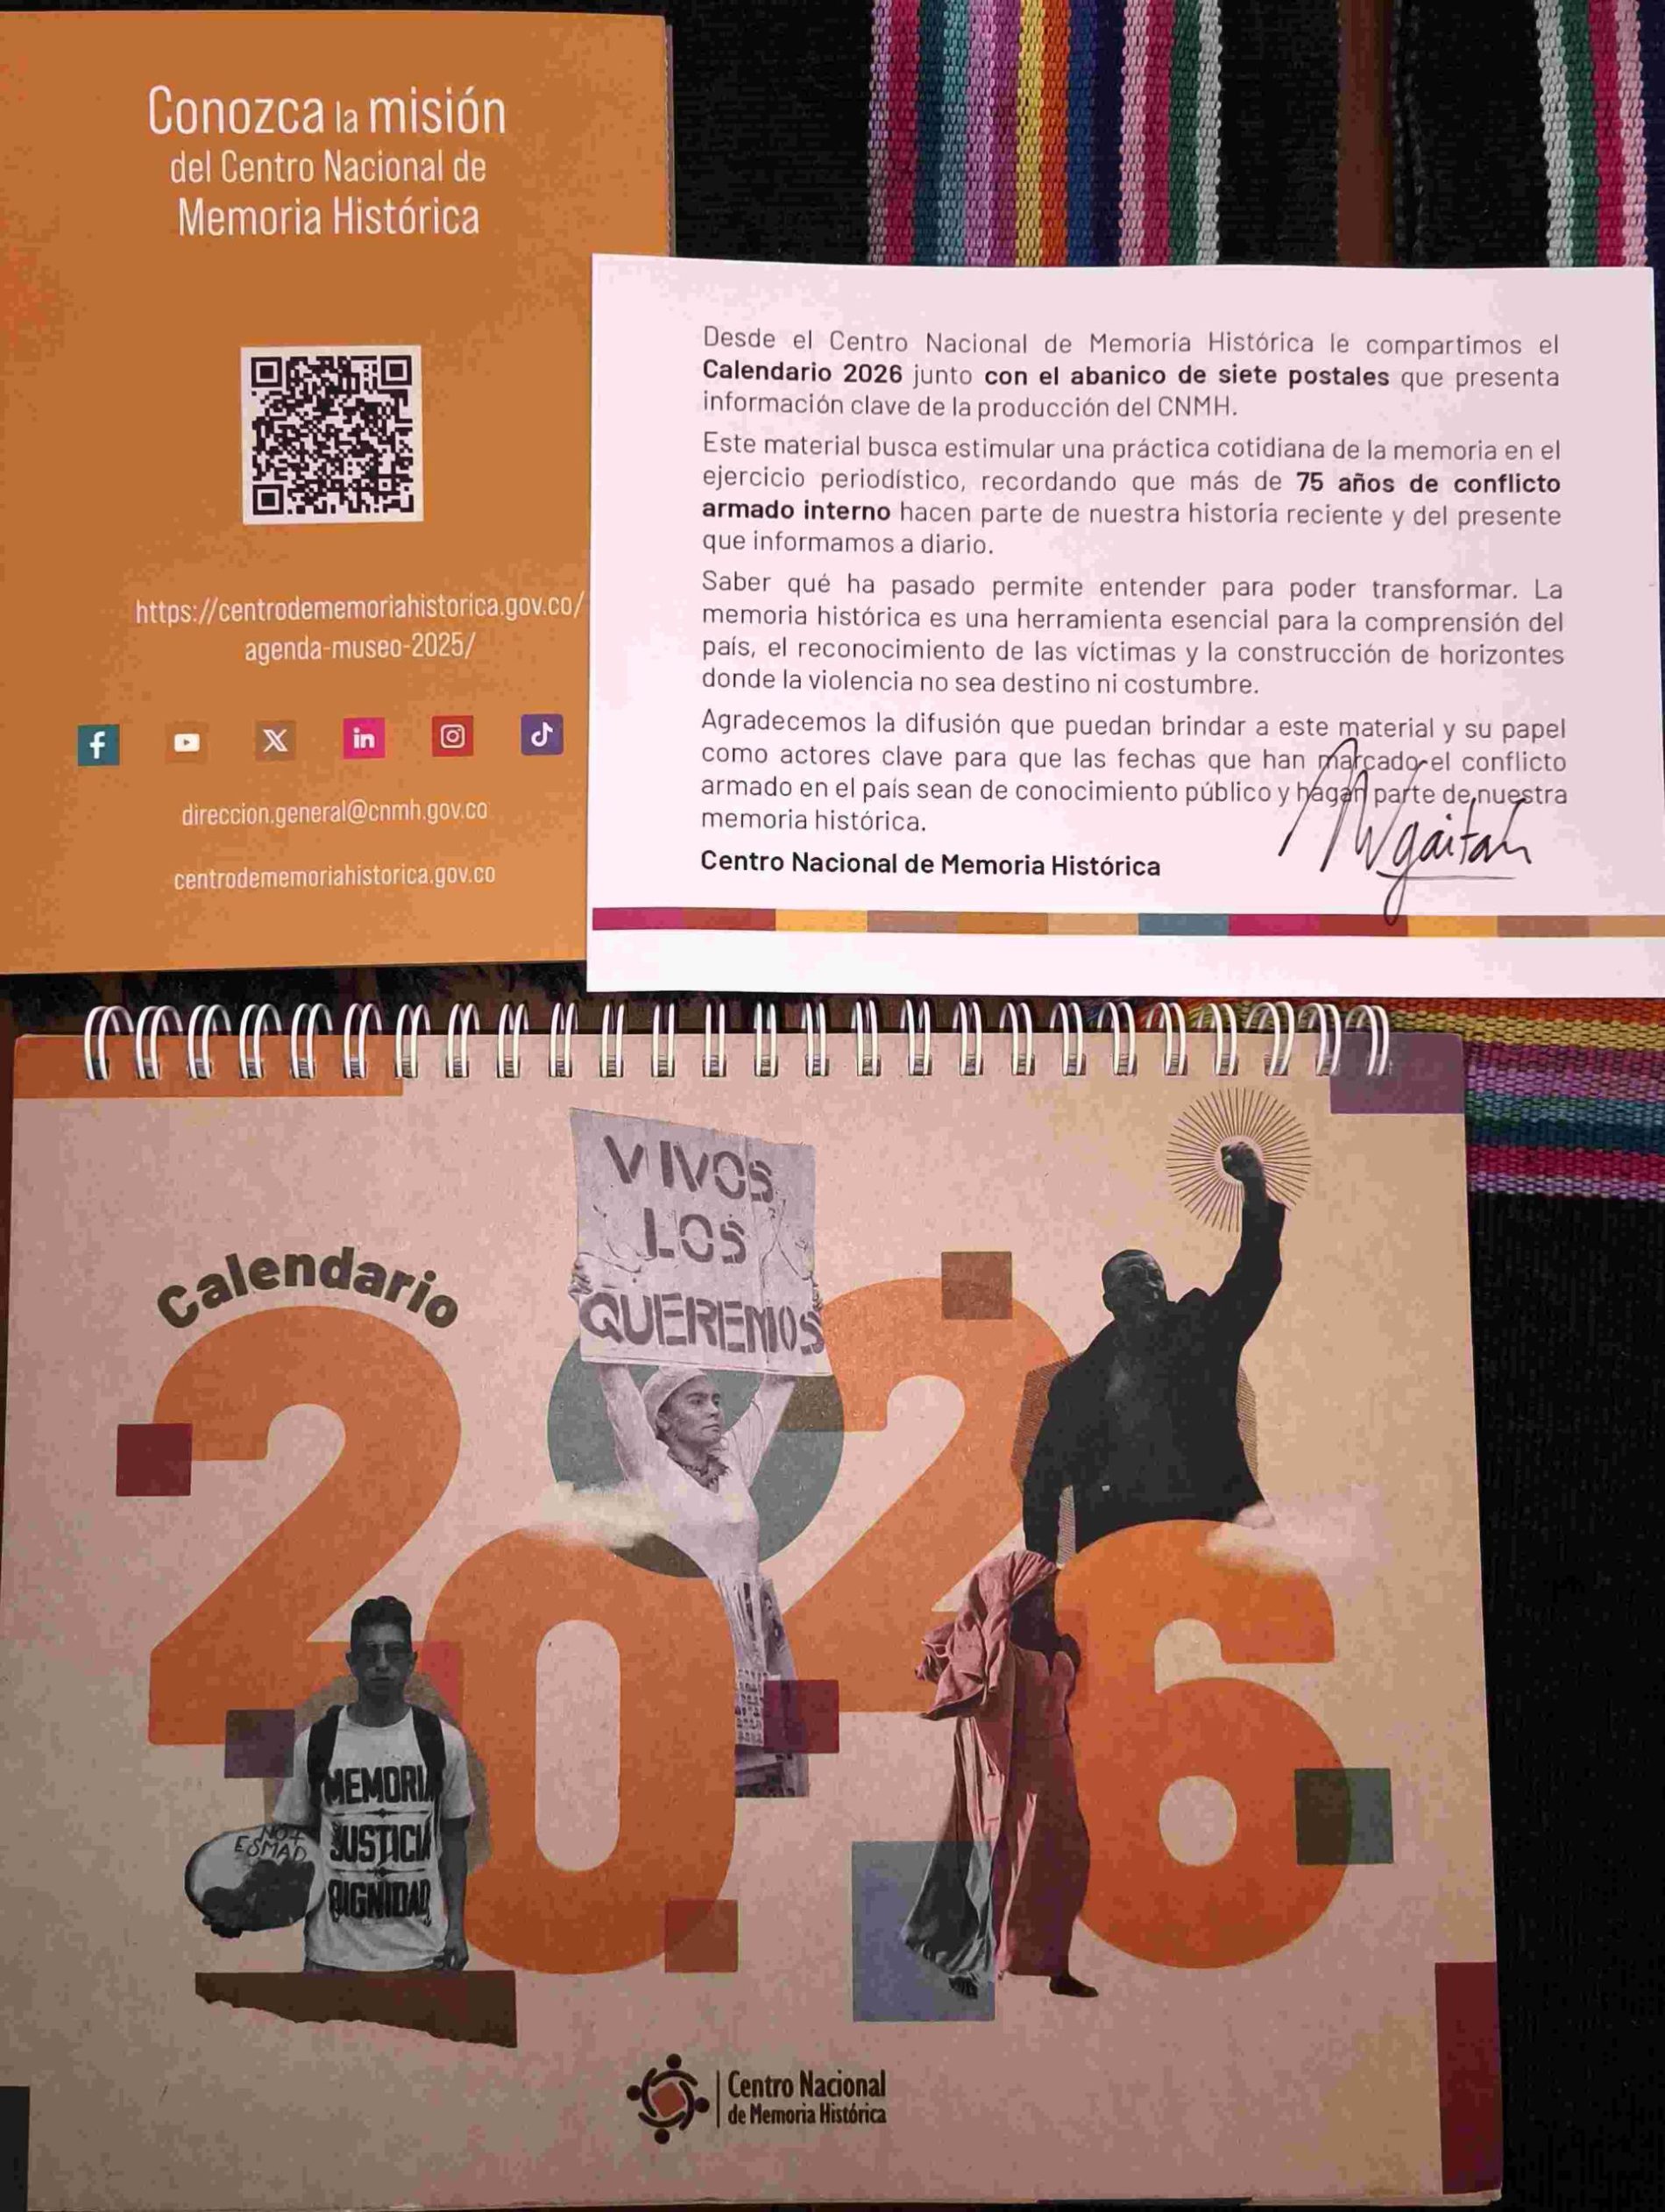 Conozca la misión
del Centro Nacional de
Memoria Histórica
https://centrodememoriahistorica.gov.co/
agenda-museo-2025/
direccion.general@cnmh.gov.co
centrodememoriahistorica.gov.co
Desde el Centro Nacional de Memoria Histórica le compartimos el
Calendario 2026 junto con el abanico de siete postales que presenta
información clave de la producción del CNMH.
Este material busca estimular una práctica cotidiana de la memoria en el
ejercicio periodístico, recordando que más de 75 años de conflicto
armado interno hacen parte de nuestra historia reciente y del presente
que informamos a diario.
Saber qué ha pasado permite entender para poder transformar. La
memoria histórica es una herramienta esencial para la comprensión del
país, el reconocimiento de las víctimas y la construcción de horizontes
donde la violencia no sea destino ni costumbre.
Agradecemos la difusión que puedan brindar a este material y su papel
como actores clave para que las fechas que han marcado el conflicto
armado en el país sean de conocimiento público y hagan parte de nuestra
memoria histórica.
Centro Nacional de Memoria Histórica
gaitan
Calendario
2026
VIVOS
LOS
QUEREMOS
MEMORIA
JUSTICIA
DIGNIDAD
ESMAD
Centro Nacional
de Memoria Histórica